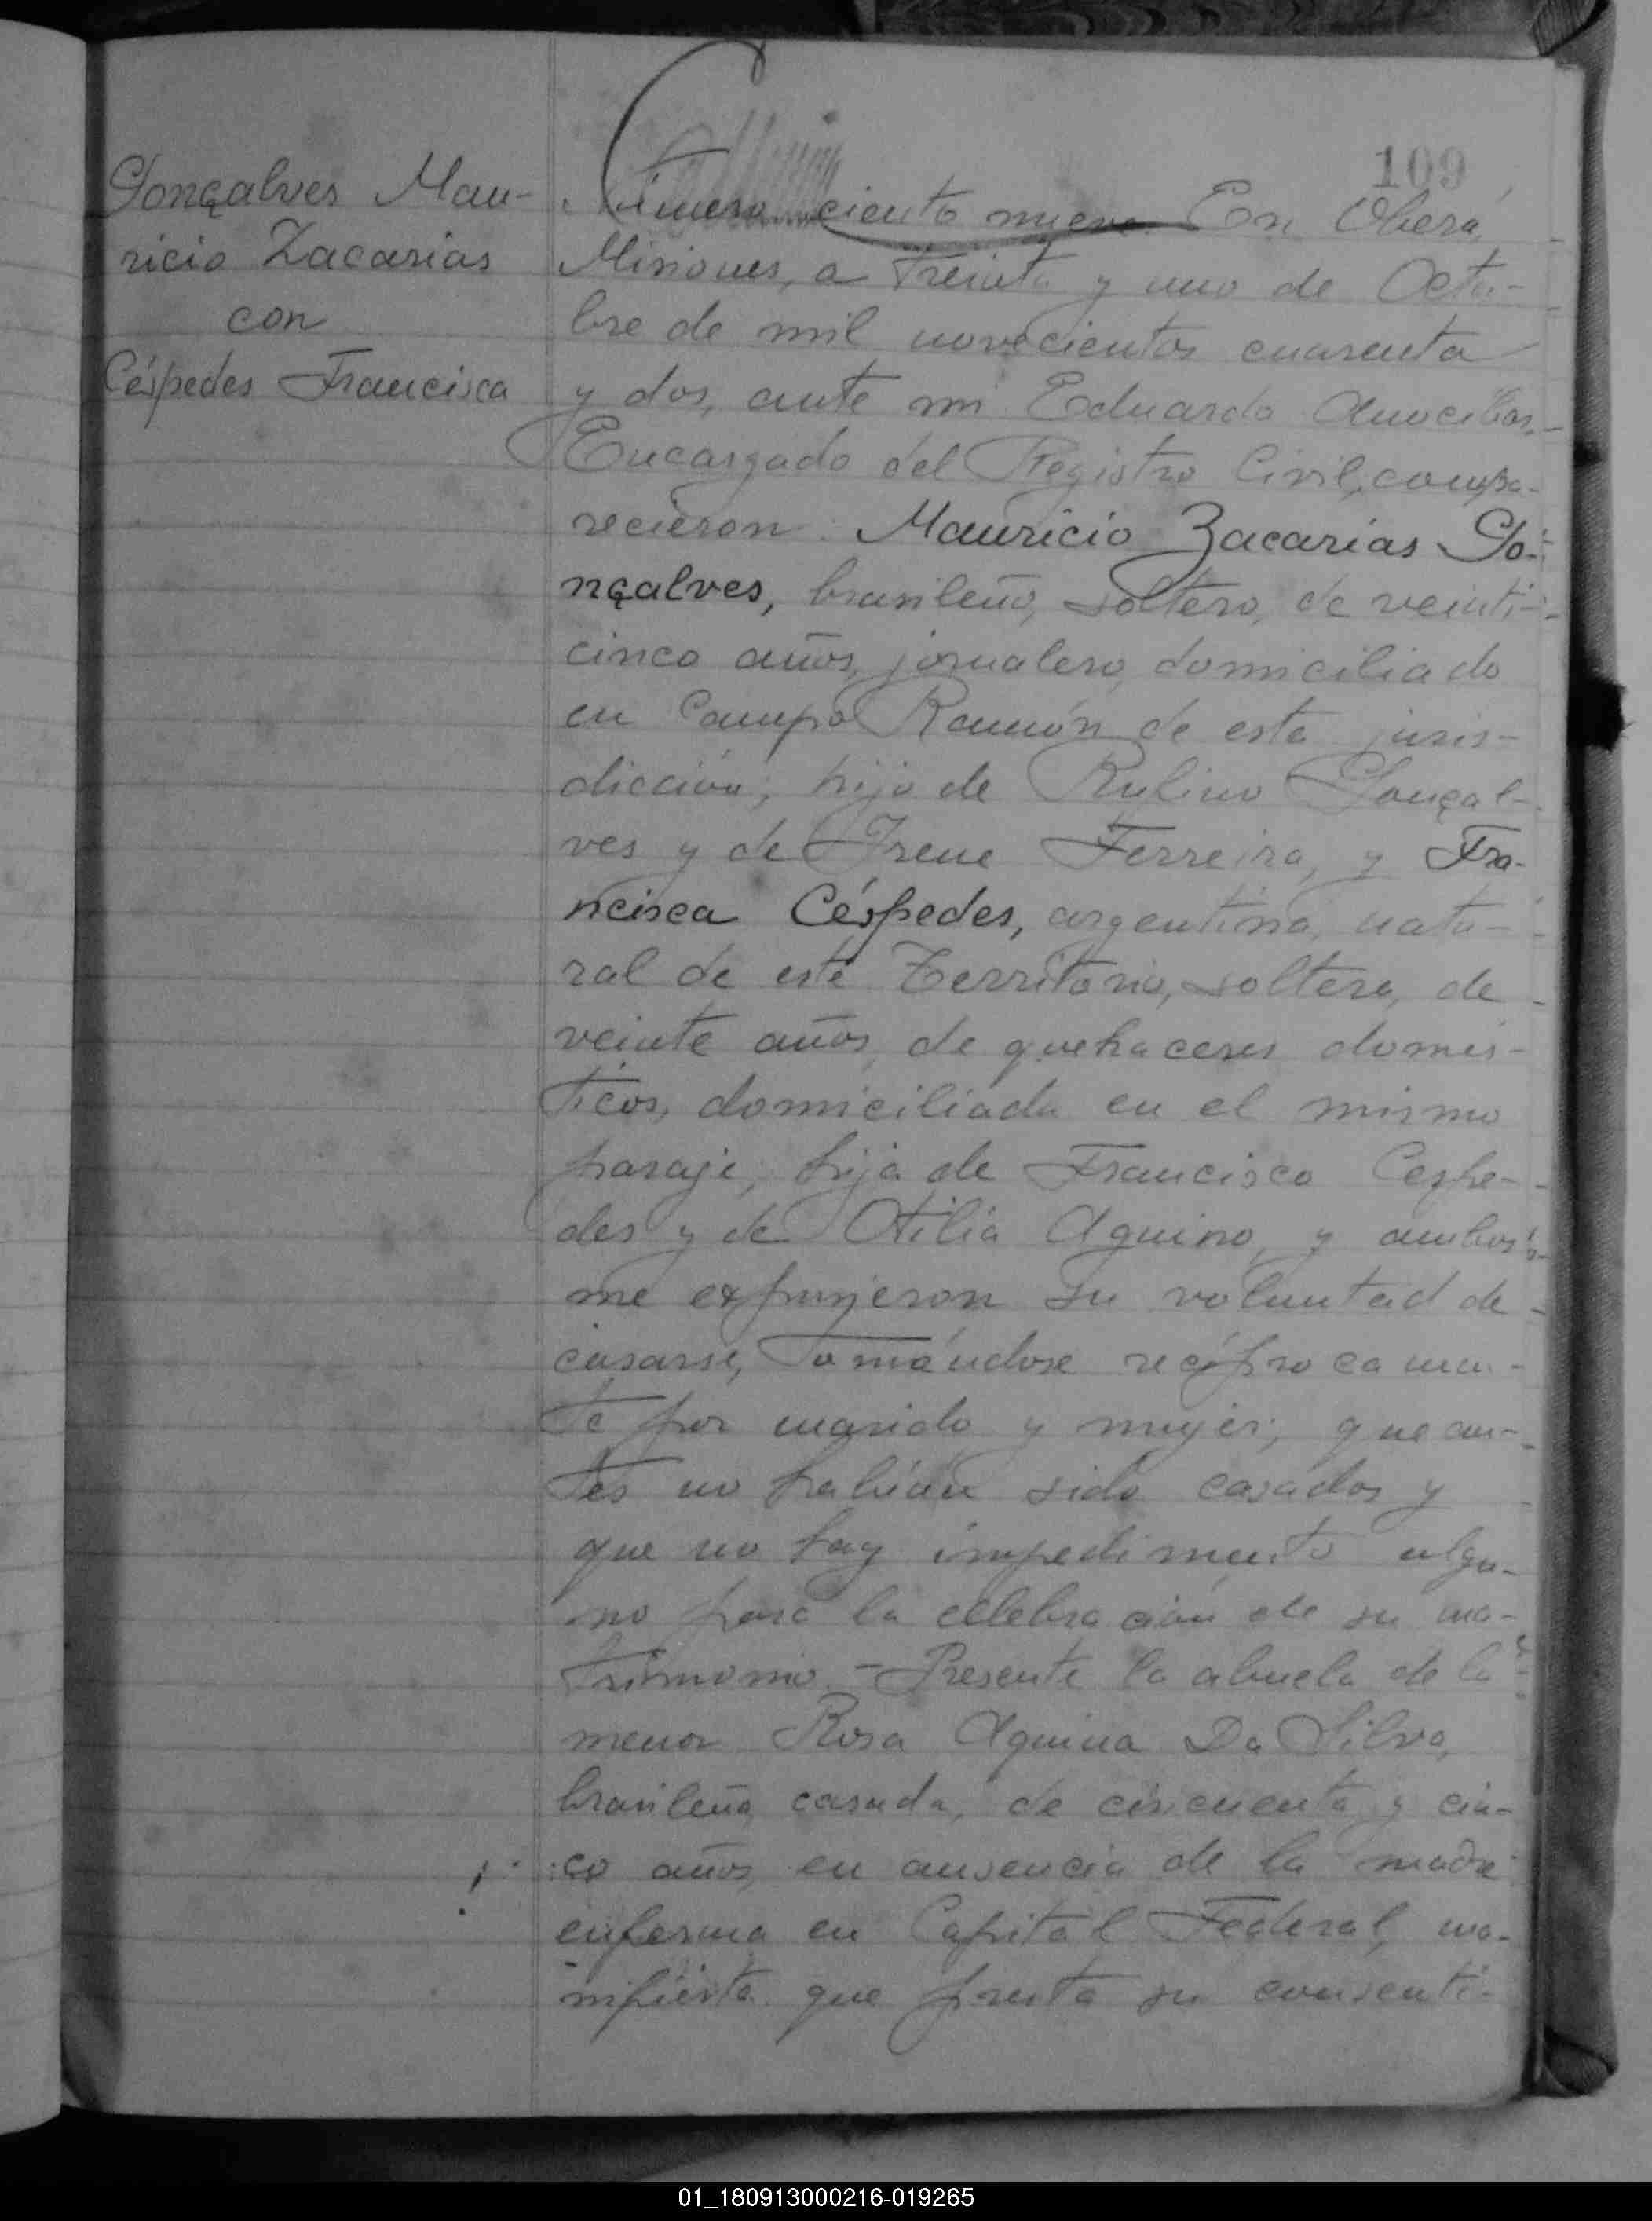 109
Gonçalves Mau-
ricio Zacarias
con
Céspedes Francisca
Número ciento nueve. En Oberá,
Misiones, a treinta y uno de Octu-
bre de mil novecientos cuarenta
y dos, ante mi Eduardo
Encargado del Registro Civil, compa-
recieron: Mauricio Zacarias Go-
nçalves, brasileño, soltero, de veinti-
cinco años, jornalero, domiciliado
en Campo Ramón de esta juris-
dicción, hijo de Rufino Gonçal-
ves y de Irene Ferreira, y Fra-
ncisca Céspedes, argentina, natu-
ral de este Territorio, soltera, de
veinte años, de quehaceres domés-
ticos, domiciliada en el mismo
paraje, hija de Francisco Cespe-
des y de Otilia Aquino, y ambos
me exprujeron su voluntad de
casarse, tomándose recíprocamen-
te por marido y mujer; que an-
tes no habían sido casados y
que no hay impedimento algu-
no para la celebración de su ma-
trimonio - Presente la abuela de la
menor Rosa Aquina Da Silva,
brasileña, casada, de cincuenta y cin-
co años, en ausencia de la madre
enferma en Capital Federal, ma-
nifiesta que presta su consenti-
01_180913000216-019265